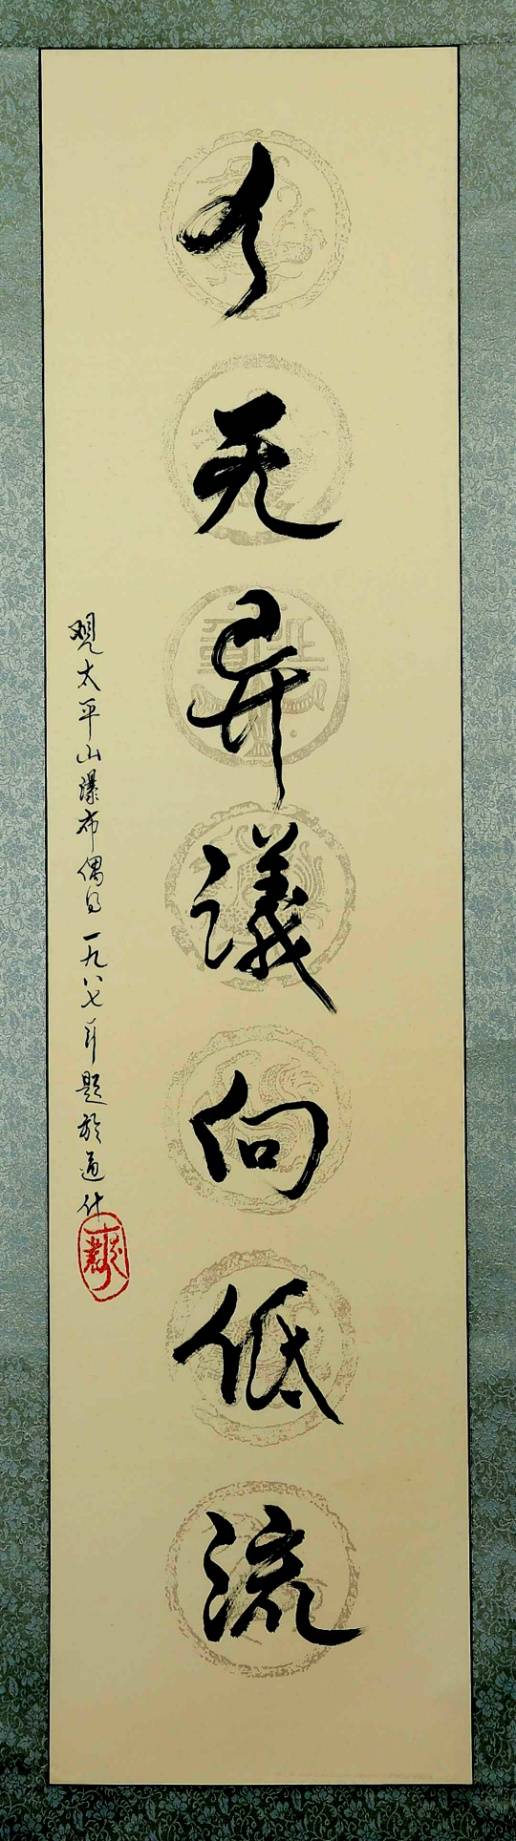 水无异议向低流
观太平山瀑布偶得 一九八七年题於通什